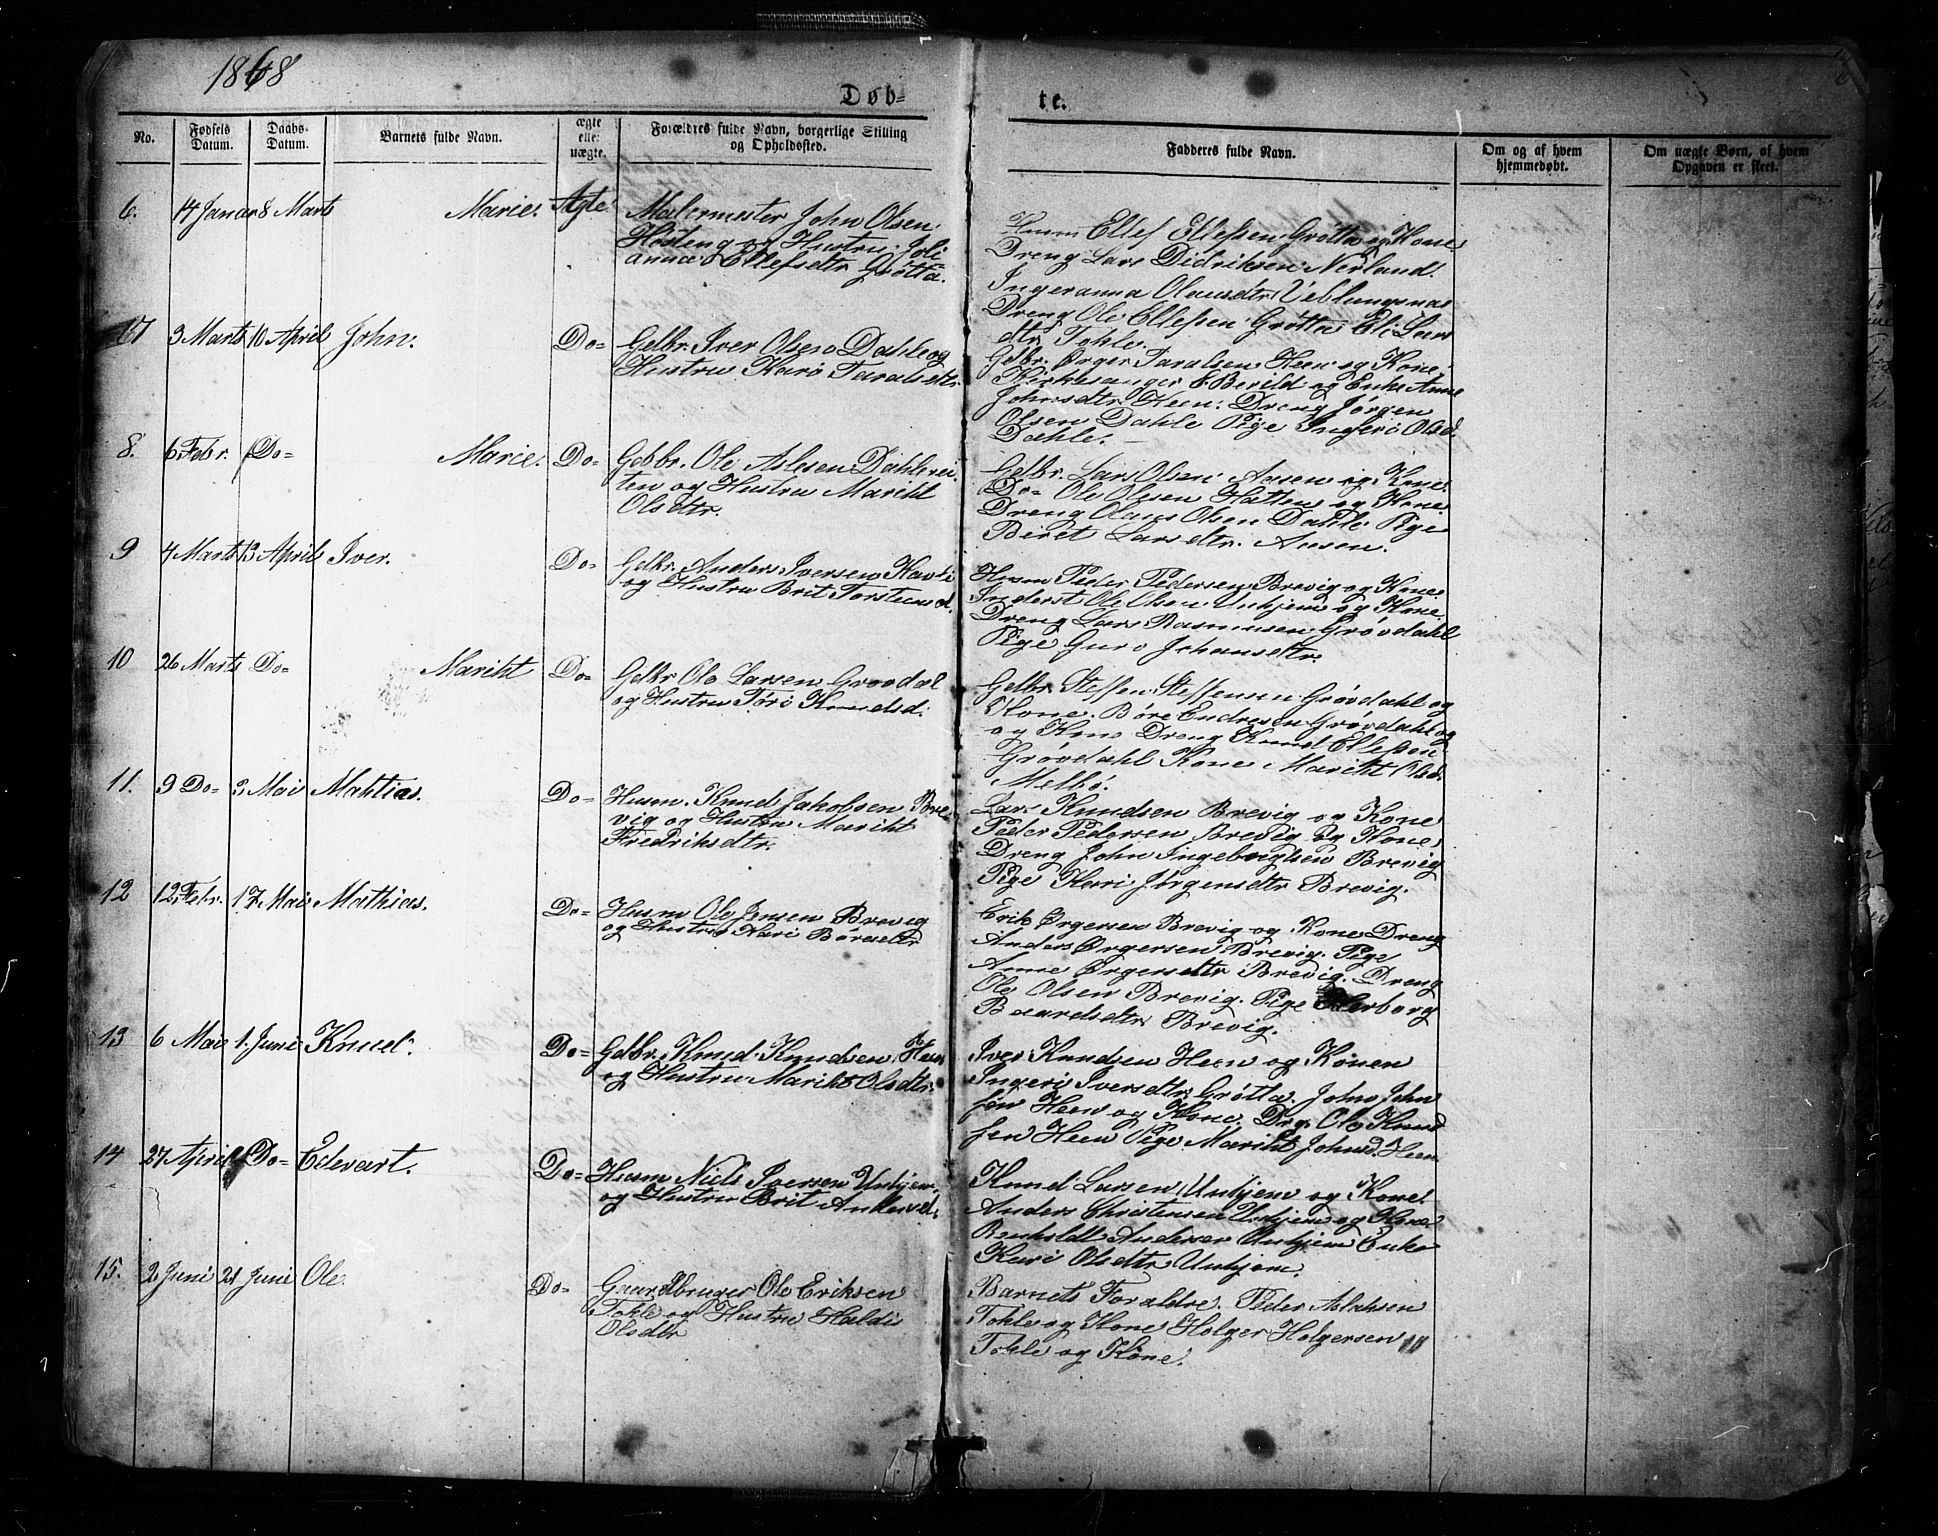 1868
Døb=
te.
No.
Fødsels Datum.
Daabs-Datum.
Barnets fulde Navn.
ægte elle: uægte.
Forældres fulde Navn, borgerlige Stilling og Opholdssted.
Fadderes fulde Navn.
Om og af hvem hjemmedøbt.
Om uægte Børn, af hvem Opgaven er skeet.
6. 14 Januar 8 Marts Marie. Ægte Malermester John Olsen
Høsteng og Hustru Joli
anna Ellefsdtr Grøtta.
Husm Ellef Ellefsen Grøtta og Kone
Dreng Lars Didriksen Nerland.
Ingeranna Olausdtr Veblungsnæs
Dreng Ole Ellefsen Grøtta Eli Lars
dtr Tokle.
7 3 Marts 10 April John. Do= Gdbr. Iver Olsen Dahle og
Hustru Karo Taralsdtr
Gdbr. Ørger Taralsen Heen og Kone,
Kirkesanger E Berild og Enke Anne
Johnsdtr Heen. Dreng Jørgen
Olsen Dahle Pige Ingerø Olsd.
Dahle.
8. 6 Febr. Do= Marie. Do= Gdbr. Ole Aslesen Dahlevei
ten og Hustru Mariht
Olsdtr.
Gdbr. Lars Olsen Aasen og Kone.
Do= Ole Olsen Hatten og Kone
Dreng Olaus Olsen Dahle Pige
Beret Larsdtr. Aasen.
9 4 Marts 13 April Iver. Do= Gdbr. Anders Iversen Havli
og Hustru Brit Torsteinsd.
Husm Peder Pedersen Brevig og Kone.
Inderst Ole Olsen Unhjem og Kone
Dreng Lars Rasmusen Grøvdahl
Pige Guro Johansdtr.
10 26 Marts Do= Mariht Do= Gdbr Ole Larsen Grøvdal
og Hustru Tøri Knudsd.
Gdbr. Steffen Steffensen Grøvdahl og
Kone. Børe Endresen Grøvdahl og
og Kone Dreng Knud Ellefsen
Grøvdahl Kone Mariht Olsd.
Melbø.
11. 9 Do= 3 Mai Mahtias. Do= Husm. Knud Jakobsen Bre
vig og Hustru Mariht
Fredriksdtr.
Lars Knudsen Brevig og Kone
Peder Pedersen Brevig og Kone
Dreng John Ingebrigtsen Brevig
Pige Kari Jørgensdtr Brevig.
12 12 Febr. 17 Mai Mathias. Do= Husm Ole Jensen Brevig
og Hustru Kari Børesdtr
Erik Ørgersen Brevig og Kone Dreng
Anders Ørgersen Brevig. Pige
Anne Ørgersdtr Brevig. Dreng
Ole Olsen Brevig. Pige Herborg
Baardsdtr Brevig.
13 6 Mai 1. Juni Knud. Do= Gdbr. Knud Knudsen Heen
og Hustru Mariht Olsdtr.
Iver Knudsen Heen og Konen
Ingeri Iversdtr Grøtta. John John
sen Heen og Kone. Drg. Ole Knud
sen Heen Pige Mariht Johnsd. Heen
14 27 April Do= Edevart. Do= Husm Niels Iversen Unhjem
og Hustru Brit Andersd.
Knud Larsen Unhjem og Kone.
Anders Christensen Unhjem og Kone
Renholdt Andersen Unhjem Enke
Kari Olsdtr Unhjem.
15. 2 Juni 21 Juni Ole. Do= Gaardbruger Ole Eriksen
Tokle og Hustru Haldis
Olsdtr
Barnets Forældre. Peder Aslaksen
Tokle og Kone Holger Holgersen
Tokle og Kone.